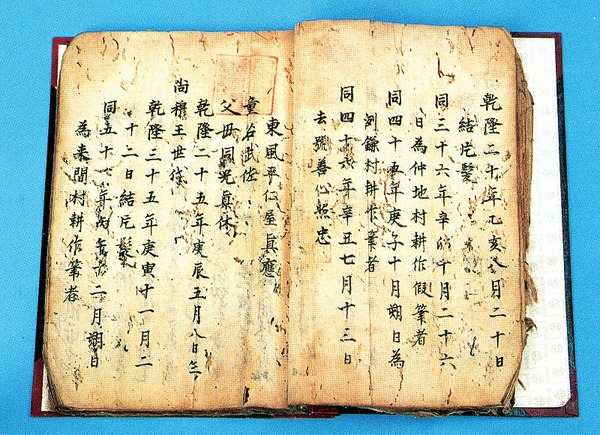 乾隆二十年乙亥八月二十日
結片髪
同三十六年辛卯十月二十六
日為仲地村耕作假筆者
同四十五年庚子十月朔日為
洲鎌村耕作筆者
同四十六年辛丑七月十三日
去號善心忠
東風平仁屋真應
童名武佐
父世同兄真休
乾隆二十五年庚辰五月八日生
尚穆王世代
乾隆三十五年庚寅十一月二
十二日結片髪
同五十一年丙午十二月朔日
為来間村耕作筆者